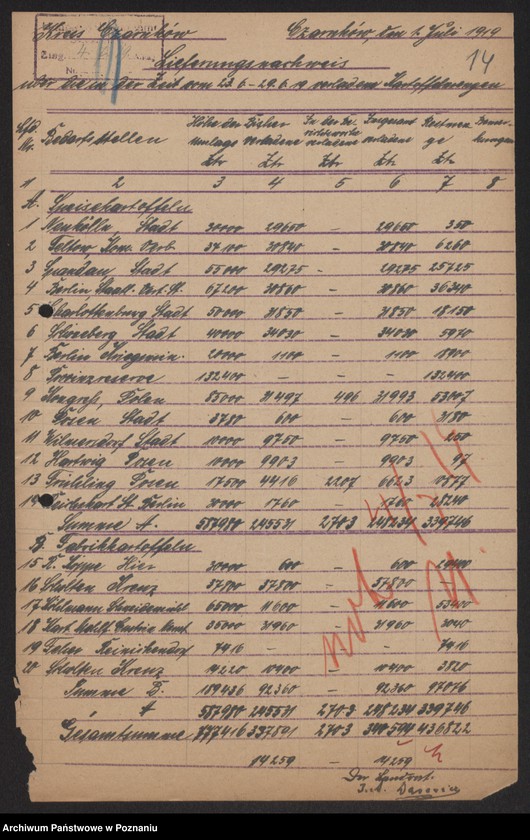 Kreis Czarnków Czarnków, den 1. Juli 1919
14
Lieferungsnachweis
über die in der Zeit vom 23.6 - 29.6 19 verladenen Kartoffelmengen
Lfd. Nr. Bedarfsstellen Höhe der Umlage Ztr Bisher verladene Ztr In der Be-richtswoche verladene Ztr Insgesamt verladene Ztr Restmenge Ztr Bemerkungen
1 2 3 4 5 6 7 8
A. Speisekartoffeln
1 Neukölln, Stadt 30000 29650 - 29650 350
2 Teltow Kom. Verb. 37100 30840 - 30840 6260
3 Spandau Stadt 55000 29275 - 29275 25725
4 Berlin 67200 30860 - 30860 36340
5 Charlottenburg Stadt 50000 31850 - 31850 18150
6 Schöneberg Stadt 40000 34030 - 34030 5970
7 Berlin 20000 1100 - 1100 18900
8 Provinzreserve 132400 - - - 132400
9 Kongreß, Polen 85000 31497 496 31993 53007
10 Posen Stadt 3780 600 - 600 3180
11 Wilmersdorf Stadt 10000 9750 - 9750 250
12 Hartwig Posen 10000 9903 - 9903 97
13 Posen 17500 4416 2207 6623 10877
14 Berlin 30000 1760 - 1760 28240
Summe A. 587980 245531 2703 248234 339746
B. Fabrikkartoffeln
15 Hier 30000 600 - 600 29400
16 Scholten Kreuz 37800 37800 - 37800 -
17 65000 11600 - 11600 53400
18 35000 31960 - 31960 3040
19 Reinickendorf 7416 - - - 7416
20 Scholten Kreuz 14220 10400 - 10400 3820
Summe B. 189436 92360 - 92360 97076
A 587980 245531 2703 248234 339746
Gesamtsumme 777416 337891 2703 340594 436822
14259 - 14259
Der Landrat.
Archiwum Państwowe w Poznaniu